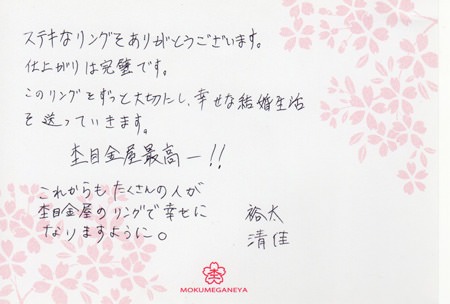 ステキなリングをありがとうございます。
仕上がりは完璧です。
このリングをずっと大切にし、幸せな結婚生活
を送っていきます。
杢目金屋最高ー!!
これからもたくさんの人が
杢目金屋のリングで幸せに
なりますように。
裕太
清佳
MOKUMEGANEYA